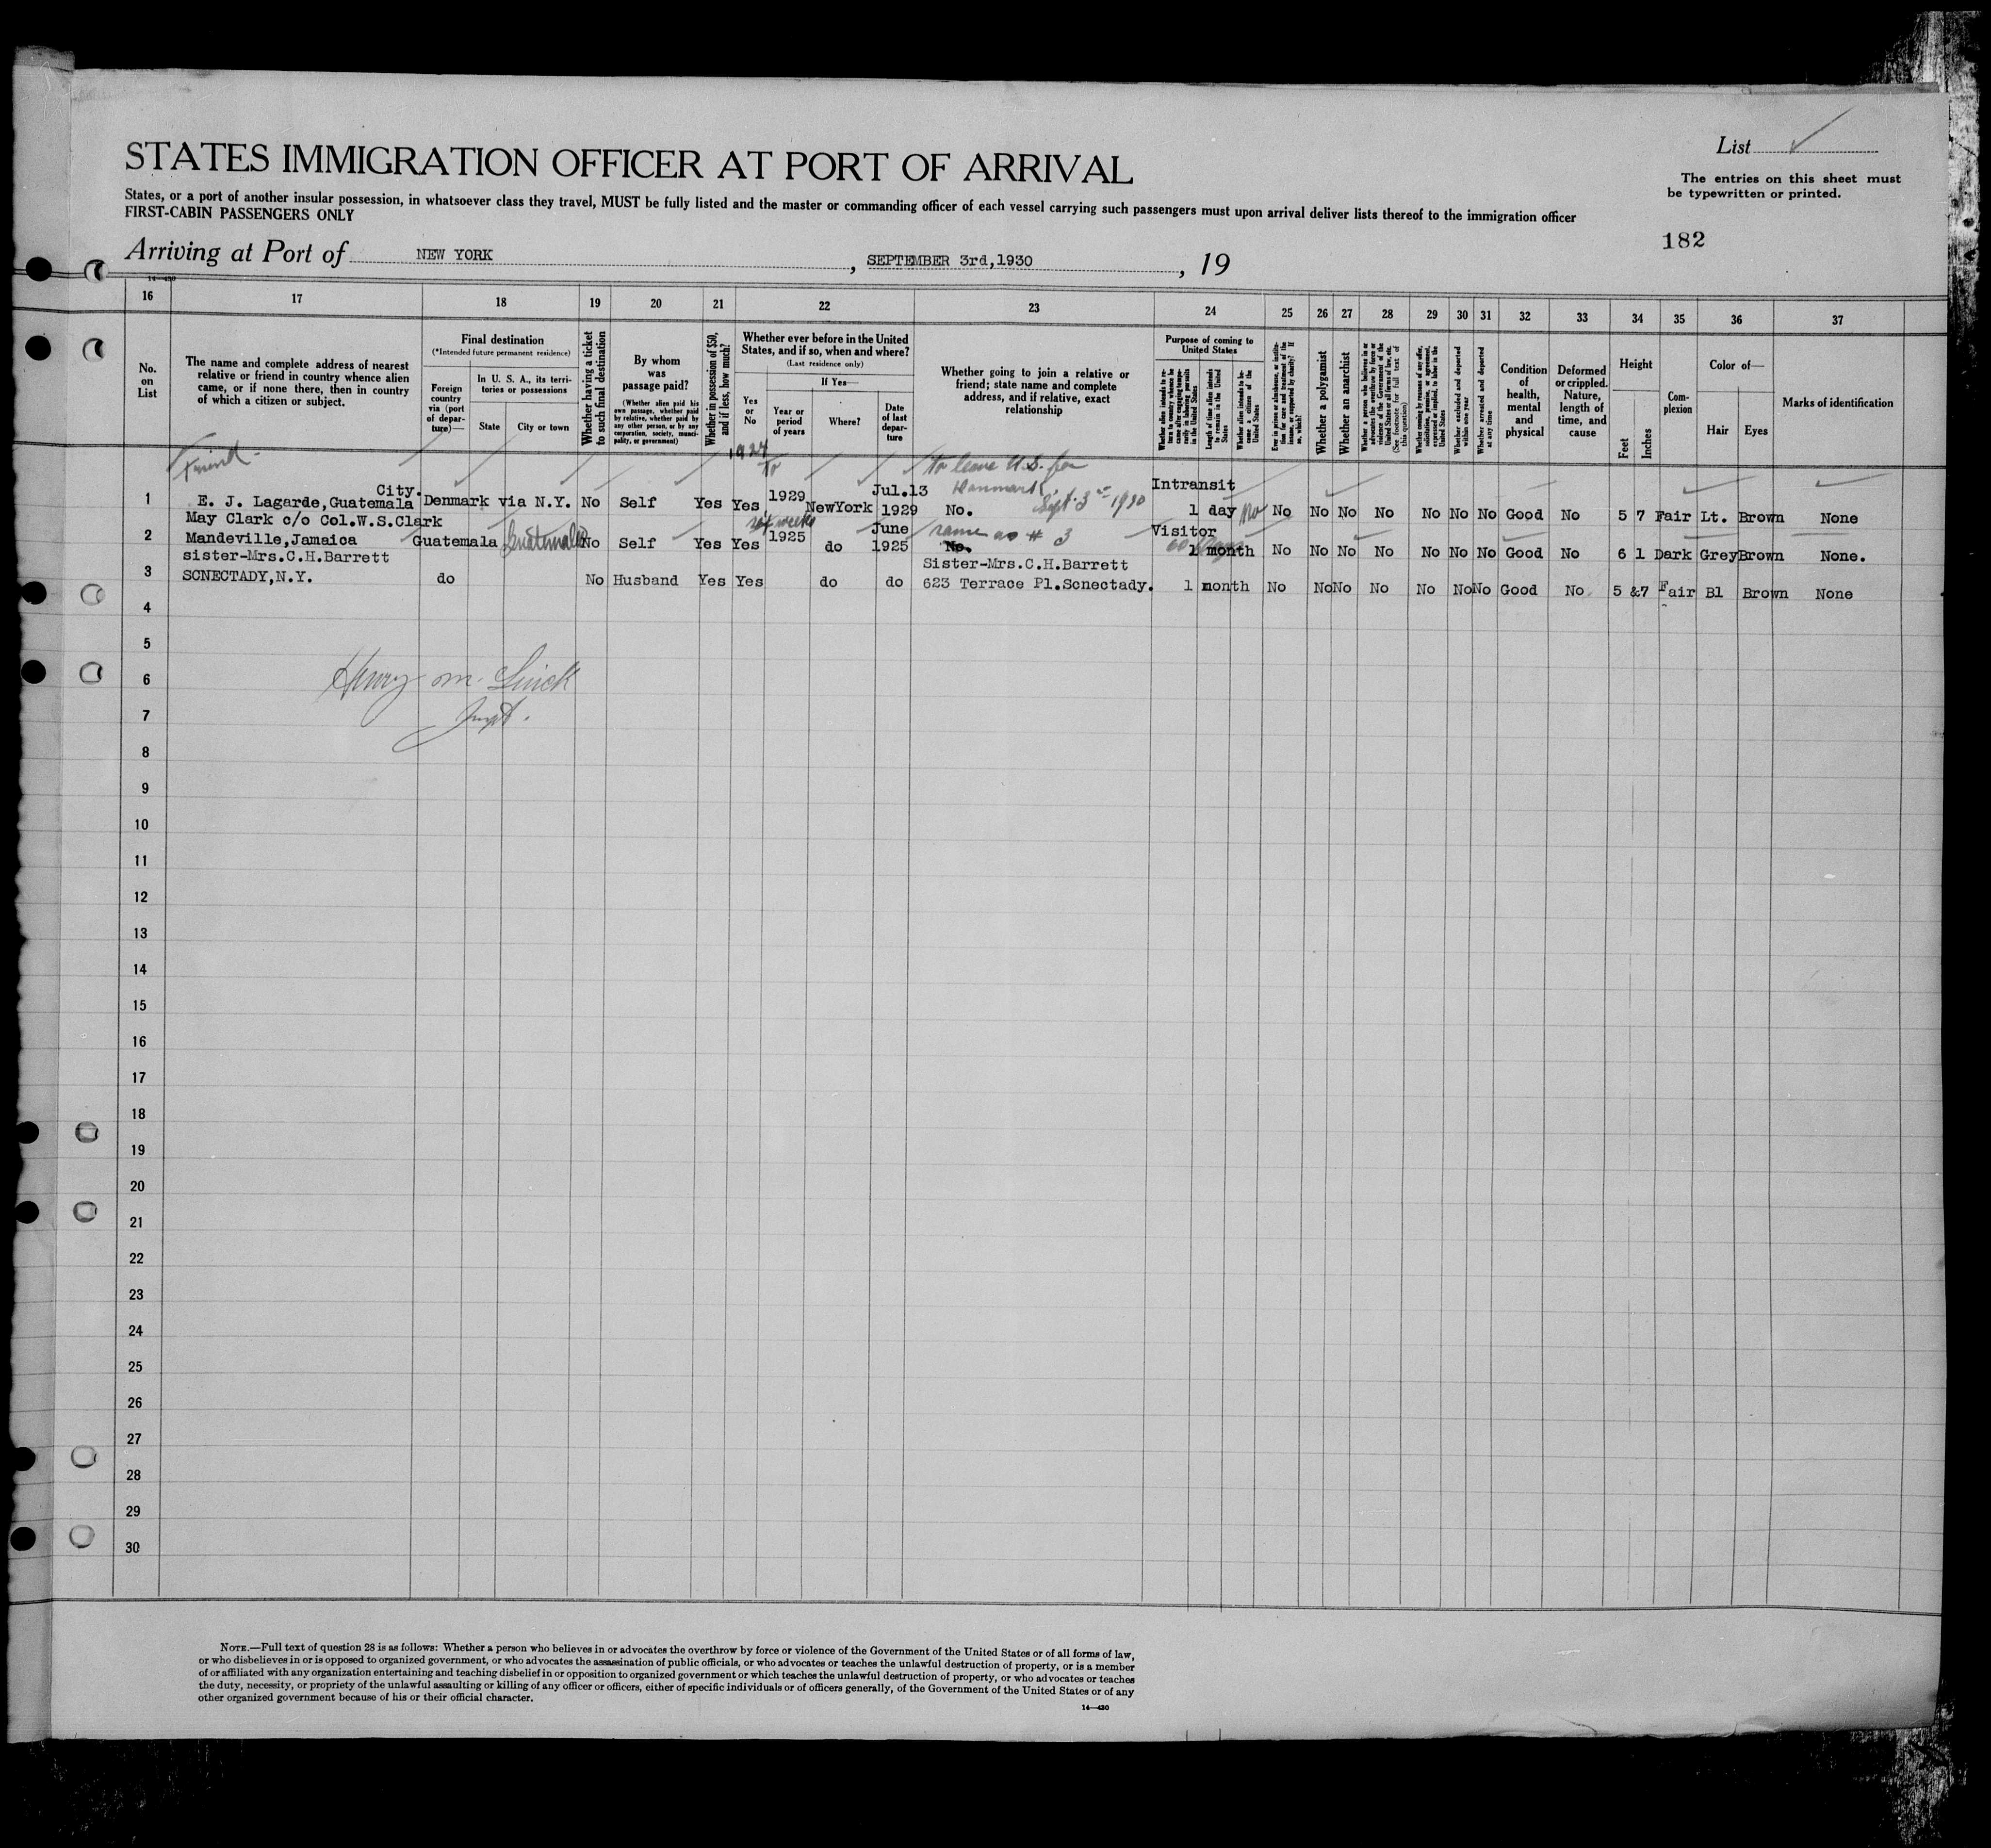 STATES IMMIGRATION OFFICER AT PORT OF ARRIVAL
List
The entries on this sheet must
be typewritten or printed.
States, or a port of another insular possession, in whatsoever class they travel, MUST be fully listed and the master or commanding officer of each vessel carrying such passengers must upon arrival deliver lists thereof to the immigration officer
FIRST-CABIN PASSENGERS ONLY
182
Arriving at Port of NEW YORK, SEPTEMBER 3rd,1930, 19
14-430
16 17 18 19 20 21 22 23 24 25 26 27 28 29 30 31 32 33 34 35 36 37
No.
on
List
The name and complete address of nearest
relative or friend in country whence alien
came, or if none there, then in country
of which a citizen or subject.
Final destination
(*Intended future permanent residence)
Foreign
country
via (port
of depar-
ture)—
In U. S. A., its terri-
tories or possessions
State
City or town
Whether having a ticket
to such final destination
By whom
was
passage paid?
(Whether alien paid his
own passage, whether paid
by relative, whether paid by
any other person, or by any
corporation, society, munici-
pality, or government)
Whether in possession of $50,
and if less, how much?
Whether ever before in the United
States, and if so, when and where?
(Last residence only)
Yes
or
No
If Yes—
Year or
period
of years
Where?
Date
of last
depar-
ture
Whether going to join a relative or
friend; state name and complete
address, and if relative, exact
relationship
Purpose of coming to
United States
Whether alien intends to re-
turn to country whence he
came after engaging tempo-
rarily in laboring pursuits
in the United States
Length of time alien intends
to remain in the United
States
Whether alien intends to be-
come a citizen of the
United States
Ever in prison or almshouse, or institu-
tion for care and treatment of the
insane, or supported by charity? If
so, which?
Whether a polygamist
Whether an anarchist
Whether a person who believes in or
advocates the overthrow by force or
violence of the Government of the
United States or all forms of law, etc.
(See footnote for full text of
this question)
Whether coming by reasons of any offer,
solicitation, promise, or agreement,
expressed or implied, to labor in the
United States
Whether excluded and deported
within one year
Whether arrested and deported
at any time
Condition
of
health,
mental
and
physical
Deformed
or crippled.
Nature,
length of
time, and
cause
Height
Feet
Inches
Com-
plexion
Color of—
Hair
Eyes
Marks of identification
Friend 1924 to to leave U.S. for
City. Jul.13 Denmark, Sept. 3rd 1930 Intransit
1 E. J. Lagarde,Guatemala Denmark via N.Y. No Self Yes Yes, 1929 NewYork 1929 No. 1 day No No No No No No No No Good No 5 7 Fair Lt. Brown None
May Clark c/o Col.W.S.Clark six weeks June same as # 3 Visitor
2 Mandeville,Jamaica Guatemala Guatemala No Self Yes Yes 1925 do 1925 No. 60 days 1 month No No No No No No No Good No 6 1 Dark Grey Brown None.
sister-Mrs.C.H.Barrett Sister-Mrs.C.H.Barrett
3 SCNECTADY,N.Y. do No Husband Yes Yes do do 623 Terrace Pl.Scnectady. 1 month No No No No No No No Good No 5 &7 Fair Bl Brown None
4
5
6 Henry M.
7
8
9
10
11
12
13
14
15
16
17
18
19
20
21
22
23
24
25
26
27
28
29
30
NOTE.—Full text of question 28 is as follows: Whether a person who believes in or advocates the overthrow by force or violence of the Government of the United States or of all forms of law,
or who disbelieves in or is opposed to organized government, or who advocates the assassination of public officials, or who advocates or teaches the unlawful destruction of property, or is a member
of or affiliated with any organization entertaining and teaching disbelief in or opposition to organized government or which teaches the unlawful destruction of property, or who advocates or teaches
the duty, necessity, or propriety of the unlawful assaulting or killing of any officer or officers, either of specific individuals or of officers generally, of the Government of the United States or of any
other organized government because of his or their official character.
14—430